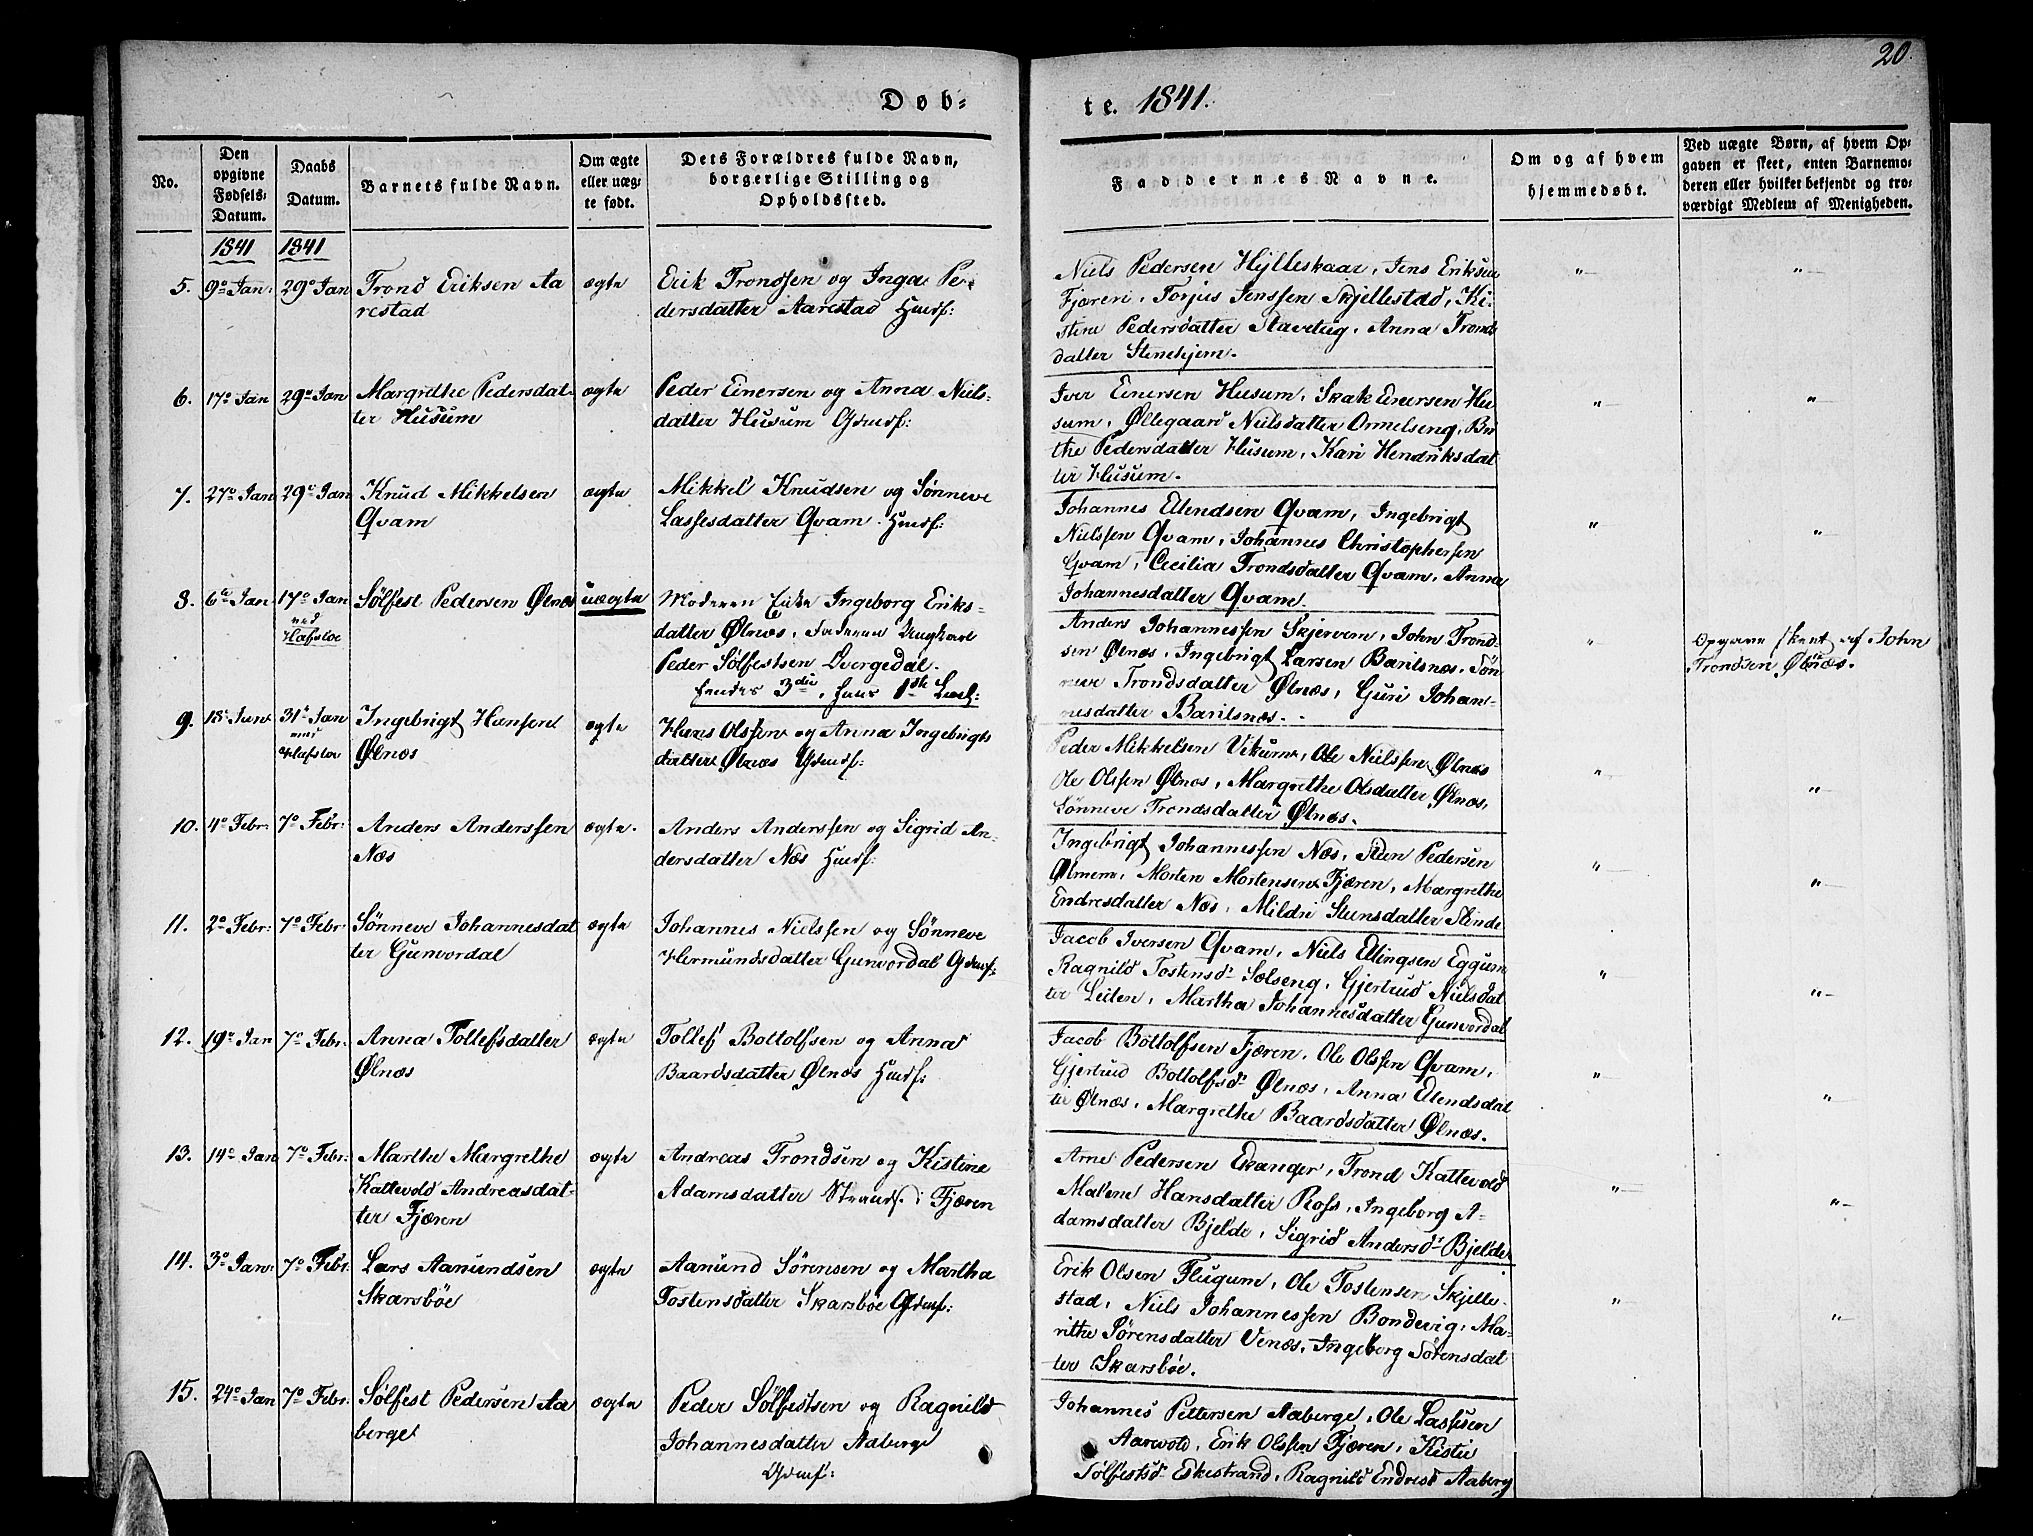 20.
Døb-
te. 1841.
No.
Den opgivne Fødsels-Datum.
Daabs Datum.
Barnets fulde Navn.
Om ægte eller uægte født.
Dets Forældres fulde Navn, borgerlige Stilling og Opholdssted.
Faddernes Navne.
Om og af hvem hjemmedøbt.
Ved uægte Børn, af hvem Opgaven er skeet, enten Barnemoderen eller hvilket bekjendt og troværdigt Medlem af Menigheden.
1841 1841
5. 9de Jan: 29de Jan Trond Eriksen Aa
restad
ægte
Erik Trondsen og Inga Pe-
dersdatter Aarestad Huusf:
Niels Pedersen Hylleskaar, Jens Eriksen
Fjæren, Torjus Jenssen Skjellestad, Ki-
stine Pedersdatter Staveteig, Anna Tronds
datter Stenehjem.
"
"
6. 17de Jan 29de Jan Margrethe Pedersdat-
ter Husum
ægte
Peder Einersen og Anna Niels-
datter Husum Gdmf:
Iver Einersen Husum, Skak Einersen Hu
sum, Øllegaard Nielsdatter Ormelseng, Bri
the Pedersdatter Husum, Kari Hendriksdat
ter Husum.
"
"
7. 27de Jan 29de Jan Knud Mikkelsen
Qvam
ægte
Mikkel Knudsen og Sønneve
Lassesdatter Qvam Huusf:
Johannes Ellendsen Qvam, Ingebrigt
Nielssen Qvam, Johannes Christophersen
Qvam, Cecilia Trondsdatter Qvam, Anna
Johannesdatter Qvam.
"
"
8. 6te Jan 17de Jan
ved
Hafsloe
Sølfest Pedersen Ølnæs
uægte
Moderen Enke Ingeborg Eriks-
datter Ølnæs, Faderen Ungkarl
Peder Sølfestsen Dvergedal.
hendes 3die, hans 1ste Leiel:
Anders Johannessen Skjerven, John Trond-
sen Ølnæs, Ingebrigt Larsen Barilsnæs, Søn
neve Trondsdatter Ølnæs, Guri Johan-
nesdatter Barilsnæs.
"
Opgave skeet af John
Trondsen Ølnæs.
9. 18de Jan 31te Jan
ved
Hafsloe
Ingebrigt Hansen
Ølnæs
ægte
Hans Olssen og Anna Ingebrigts
datter Ølnæs Gdmf:
Peder Mikkelsen Vikum, Ole Nielssen Ølnæs
Ole Olssen Ølnæs, Margrethe Olsdatter Ølnæs,
Sønneve Trondsdatter Ølnæs.
"
"
10. 4de Febr: 7de Febr: Anders Anderssen
Næs
ægte.
Anders Anderssen og Sigrid An-
dersdatter Næs Huusf:
Ingebrigt Johannessen Næs, Sten Pedersen
Ølmem, Morten Mortensen Fjæren, Margrethe
Endresdatter Næs, Mildri Stensdatter Stende
"
"
11. 2de Febr: 7de Febr: Sønneve Johannesdat
ter Gunvordal
ægte
Johannes Nielssen og Sønneve
Hermundsdatter Gunvordal Gdmf:
Jacob Iversen Qvam, Niels Ellingsen Eggum
Ragnild Tostensd: Sælseng, Gjertrud Nielsdat
ter Leiten, Martha Johannesdatter Gunvordal
"
"
12. 19de Jan 7de Febr: Anna Tollefsdatter
Ølnæs
ægte
Tollef Bottolfsen og Anna
Baardsdatter Ølnæs Huusf:
Jacob Bottolfsen Fjæren, Ole Olssen Qvam,
Gjertrud Bottolfsd: Ølnæs, Anna Ellendsdat
ter Ølnæs, Margrethe Baardsdatter Ølnæs.
"
"
13. 14de Jan 7de Febr: Marthe Margrethe
Kattevold Andreasdat-
ter Fjæren
ægte
Andreas Trondsen og Kistine
Adamsdatter Strands. i Fjæren
Arne Pedersen Ekanger, Trond Kattevold
Malene Hansdatter Ross, Ingeborg A-
damsdatter Bjelde, Sigrid Andersd: Bjelde
"
"
14. 3de Jan: 7de Febr. Lars Aamundsen
Skarsbøe
ægte
Aamund Sørensen og Martha
Tostensdatter Skarsbøe Gdmf:
Erik Olsen Flugum, Ole Tostensen Skjelle-
stad, Niels Johannessen Bondevig, Ma-
rithe Sørensdatter Venæs, Ingeborg Sørensdat
ter Skarsbøe.
"
"
15. 24de Jan 7de Febr: Sølfest Pedersen Aa
berge
ægte
Peder Sølfestsen og Ragnild
Johannesdatter Aaberge
Gdmf:
Johannes Pettersen Aaberge, Ole Lassesen
Aarvold, Erik Olssen Fjæren, Kistie
Sølfestsd: Eskestrand, Ragnild Endresd: Aaberg